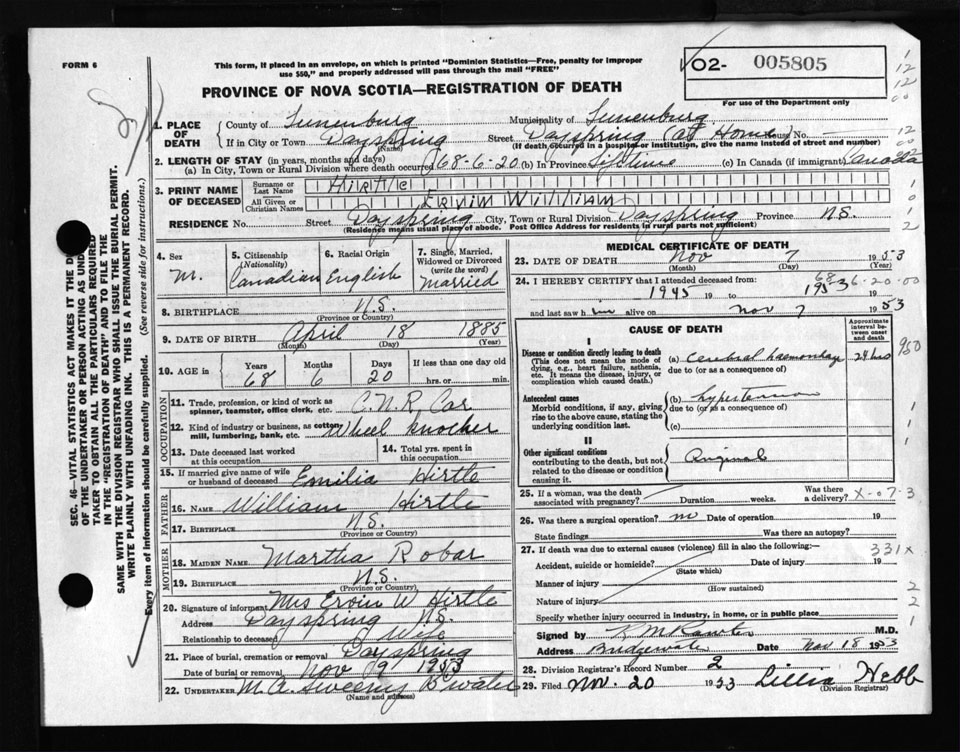 FORM 6
This form, if placed in an envelope, on which is printed "Dominion Statistics—Free, penalty for improper
use $50," and properly addressed will pass through the mail "FREE"
PROVINCE OF NOVA SCOTIA—REGISTRATION OF DEATH
O2- 005805
For use of the Department only
1. PLACE OF DEATH
County of Lunenburg Municipality of Lunenburg
If in City or Town Dayspring (Name) Street Dayspring (at Home) House No. —
(If death occurred in a hospital or institution, give the name instead of street and number)
2. LENGTH OF STAY (in years, months and days)
(a) In City, Town or Rural Division where death occurred 68-6-20 (b) In Province Lifetime (c) In Canada (if immigrant) Canada
3. PRINT NAME OF DECEASED
Surname or Last Name Hirtle
All Given or Christian Names Ervin William
RESIDENCE No. Street Dayspring City, Town or Rural Division Dayspring Province N.S.
(Residence means usual place of abode. Post Office Address for residents in rural parts not sufficient)
4. Sex M.
5. Citizenship (Nationality) Canadian
6. Racial Origin English
7. Single, Married, Widowed or Divorced (write the word) Married
8. BIRTHPLACE N.S.
(Province or Country)
9. DATE OF BIRTH April 18 1885
(Month) (Day) (Year)
10. AGE in Years 68 Months 6 Days 20 If less than one day old hrs. or min.
OCCUPATION
11. Trade, profession, or kind of work as spinner, teamster, office clerk, etc. C.N.R. Car
12. Kind of industry or business, as cotton mill, lumbering, bank, etc. Wheel knocker
13. Date deceased last worked at this occupation
14. Total yrs. spent in this occupation
15. If married give name of wife or husband of deceased Emilia Hirtle
FATHER
16. NAME William Hirtle
17. BIRTHPLACE N.S.
(Province or Country)
MOTHER
18. MAIDEN NAME Martha Robar
19. BIRTHPLACE N.S.
(Province or Country)
20. Signature of informant Mrs Ervin W Hirtle
Address Dayspring N.S.
Relationship to deceased Wife
21. Place of burial, cremation or removal Dayspring
Date of burial or removal Nov 9 1953
22. UNDERTAKER M.A. Sweeny B'water
(Name and address)
MEDICAL CERTIFICATE OF DEATH
23. DATE OF DEATH Nov 7 1953
(Month) (Day) (Year)
24. I HEREBY CERTIFY that I attended deceased from:
1945 19 to 1953 19
68 6-20-00
and last saw him alive on Nov 7 1953
CAUSE OF DEATH
Approximate interval between onset and death
I
Disease or condition directly leading to death
(This does not mean the mode of dying, e.g., heart failure, asthenia, etc. It means the disease, injury, or complication which caused death.)
(a) Cerebral haemorrhage 24 hrs
due to (or as a consequence of)
Antecedent causes
Morbid conditions, if any, giving rise to the above cause, stating the underlying condition last.
(b) hypertension
due to (or as a consequence of)
(c)
II
Other significant conditions
contributing to the death, but not related to the disease or condition causing it.
25. If a woman, was the death associated with pregnancy? Duration weeks. Was there a delivery? X-07-3
26. Was there a surgical operation? no Date of operation 19
State findings Was there an autopsy?
27. If death was due to external causes (violence) fill in also the following:— 331x
Accident, suicide or homicide? Date of injury 19
(State which)
Manner of injury
(How sustained)
Nature of injury
Specify whether injury occurred in industry, in home, or in public place
Signed by M.D.
Address Bridgewater Date Nov 18 1953
28. Division Registrar's Record Number 2
29. Filed Nov. 20 1953 Lillia Webb
(Division Registrar)
SEC. 46—VITAL STATISTICS ACT MAKES IT THE
OF THE UNDERTAKER OR PERSON ACTING AS
TAKER TO OBTAIN ALL THE PARTICULARS REQUIRED
IN THE "REGISTRATION OF DEATH" AND TO FILE THE
SAME WITH THE DIVISION REGISTRAR WHO SHALL ISSUE THE BURIAL PERMIT.
WRITE PLAINLY WITH UNFADING INK. THIS IS A PERMANENT RECORD.
Every item of information should be carefully supplied. (See reverse side for instructions.)